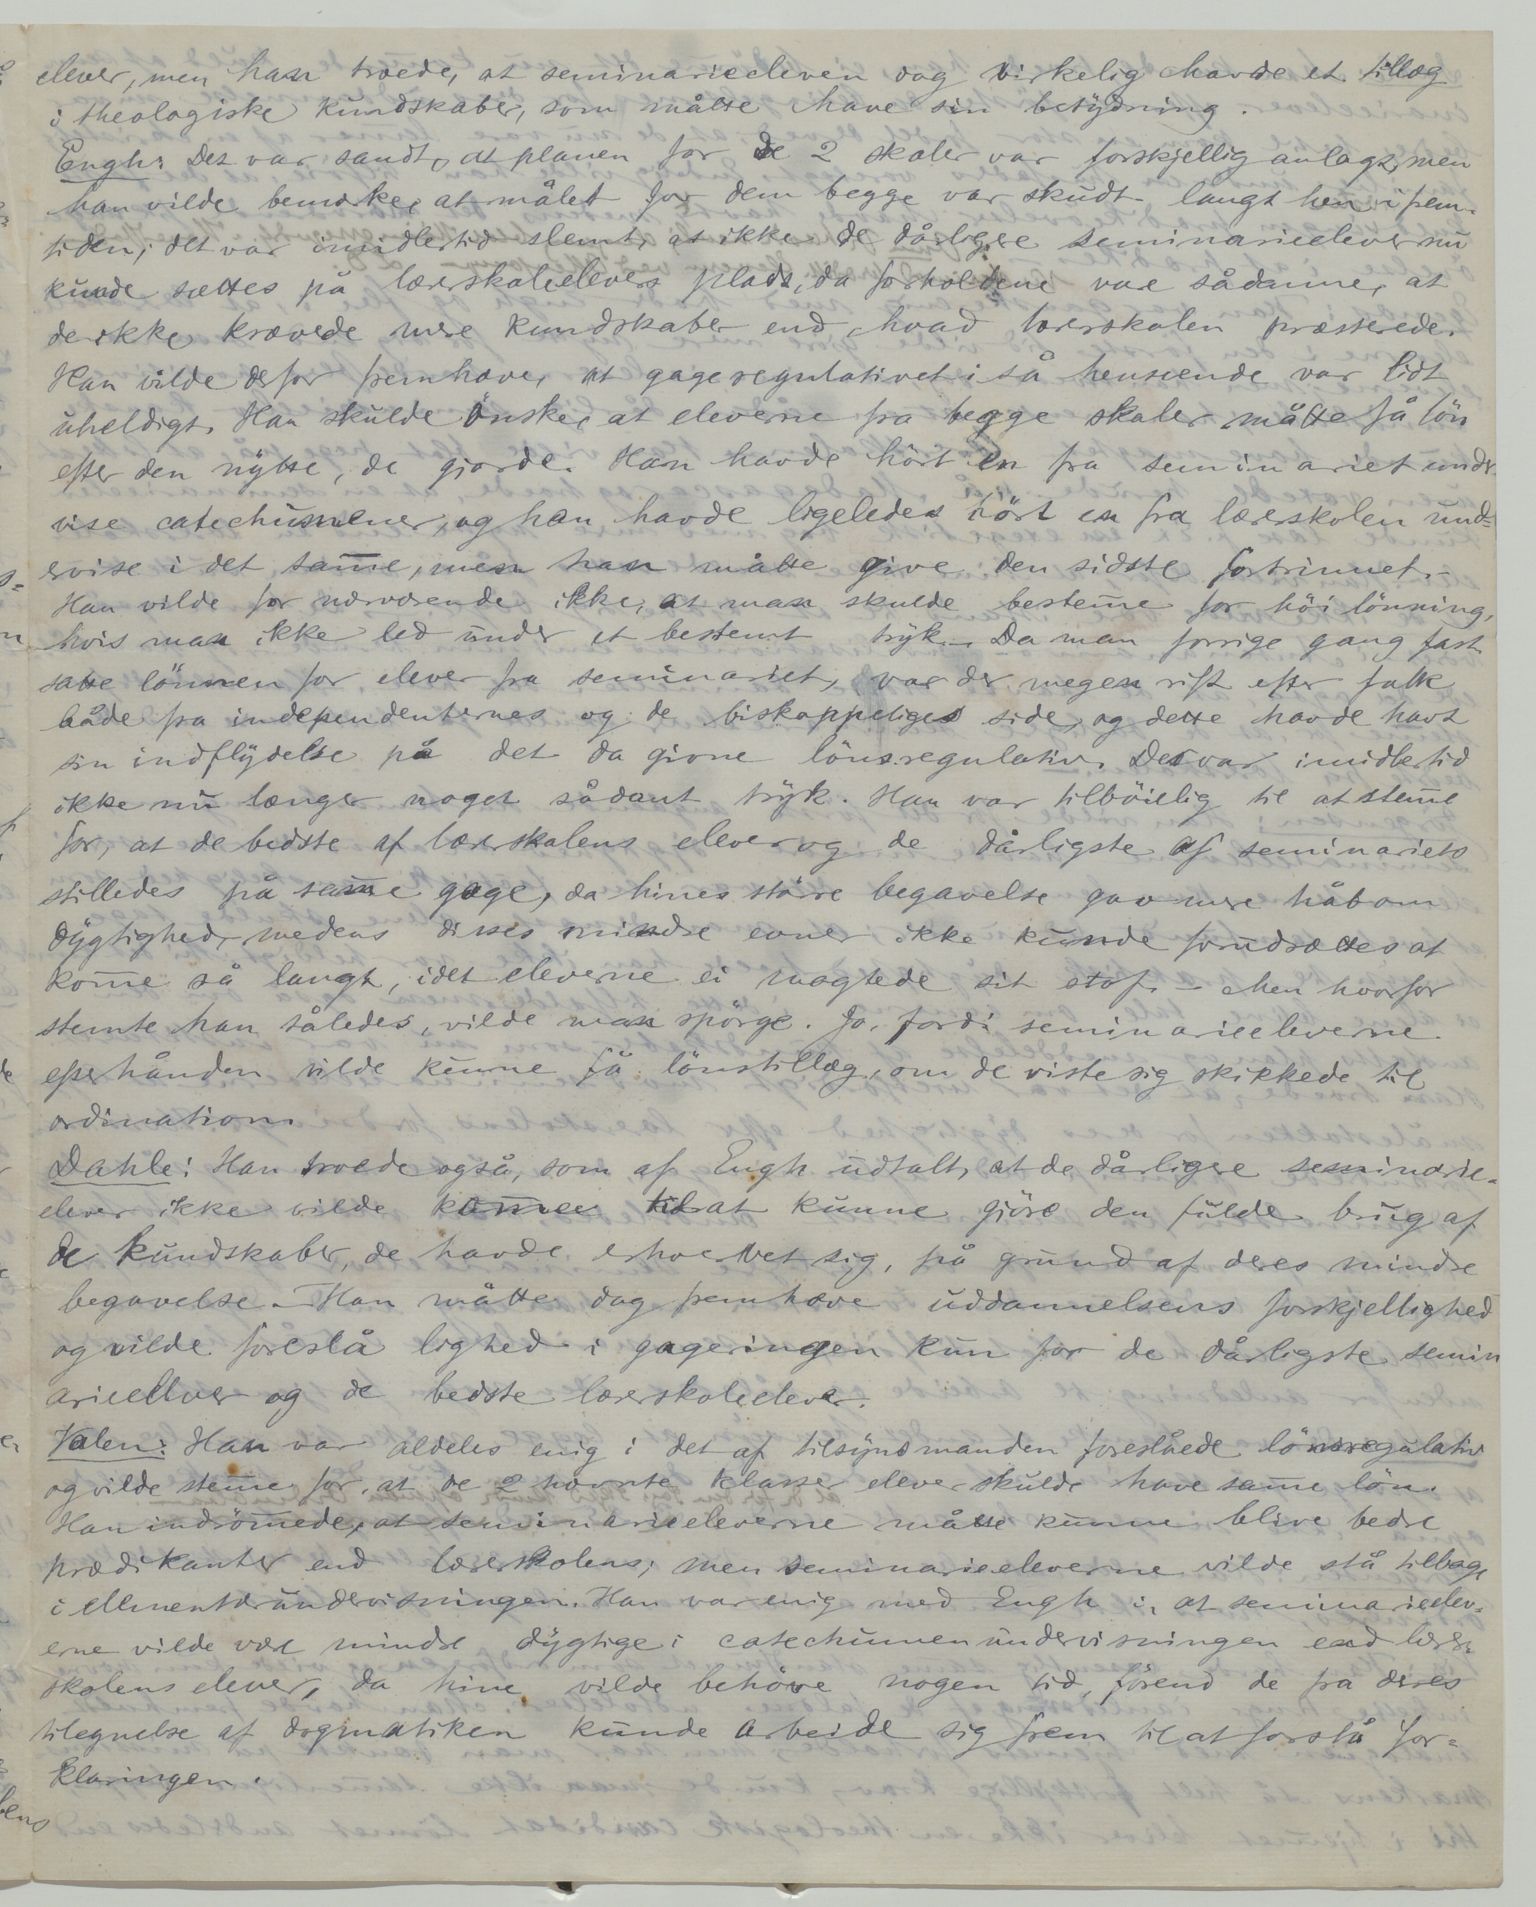 elever, men han troede, at seminarieeleven dog virkelig havde et tillæg
i theologiske kundskaber, som måtte have sin betydning.
Engh: Det var sandt, at planen for de 2 skoler var forskjellig anlagt, men
han vilde bemærke, at målet for dem begge var skudt langt hen i frem-
tiden; det var imidlertid slemt, at ikke de dårligere seminarieelever nu
kunde sættes på lærerskoleelevers plads, da forholdene vare sådanne, at
de ikke krævede mere kundskaber end hvad lærerskolen præsterede.
Han vilde derfor fremhæve, at gageregulativet i så henseende var lidt
uheldigt. Han skulde ønske, at eleverne fra begge skoler måtte få lön
efter den nytte, de gjorde. Han havde hört en fra seminariet under
vise catechumener, og han havde ligeledes hört en fra lærerskolen und=
ervise i det samme, men han måtte give den sidste fortrinnet.
Han vilde for nærværende ikke, at man skulde bestemme for höi lönning,
hvis man ikke led under et bestemt tryk. Da man forrige gang fast
satte lönnen for elever fra seminariet, var der megen rift efter folk
både fra independenternes og de biskoppeliges side, og dette havde havt
sin indflydelse på det da givne lönsregulativ. Det var imidlertid
ikke nu længer noget sådant tryk. Han var tilböielig til at stemme
for, at de bedste af lærerskolens elever og de dårligste af seminariets
stilledes på samme gage, da hines större begavelse gav mere håb om
dygtighed, medens disses mindre evner ikke kunde forudsættes at
komme så langt, idet eleverne ei magtede sit stof. – Men hvorfor
stemte han således, vilde man spörge. Jo, fordi seminarieeleverne
efterhånden vilde kunne få lönstillæg, om de viste sig skikkede til
ordination.
Dahle: Han troede også, som af Engh udtalt, at de dårligere seminarie-
elever ikke vilde komme til at kunne gjöre den fulde brug af
de kundskaber, de havde erhvervet sig, på grund af deres mindre
begavelse. – Han måtte dog fremhæve uddannelsens forskjellighed
og vilde foreslå lighed i gageringen kun for de dårligste semin
arieelever og de bedste lærerskoleelever.
Valen: Han var aldeles enig i det af tilsynsmanden foreslåede lönsregulativ
og vilde stemme for, at de 2 nævnte klasser elever skulde have samme lön.
Han indrömmede, at seminarieeleverne måtte kunne blive bedre
prædikanter end lærerskolens; men seminarieeleverne vilde stå tilbage
i elementærundervisningen. Han var enig med Engh i, at seminarieelev=
erne vilde være mindre dygtige i catechumenundervisningen end lærer
skolens elever, da hine vilde behöve nogen tid, förend de fra deres
tilegnelse af dogmatiken kunde arbeide sig frem til at forstå for=
klaringen.